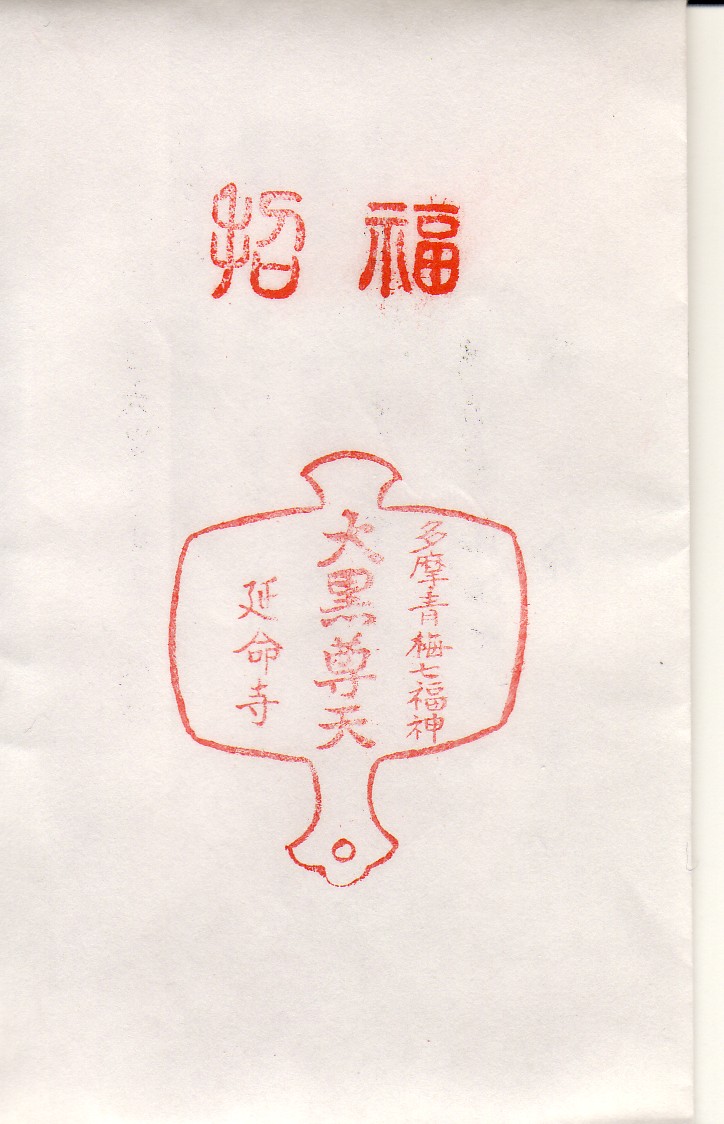 招福
多摩青梅七福神
大黒尊天
延命寺